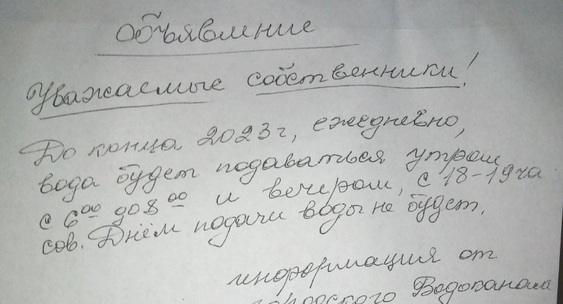 Объявление
Уважаемые собственники!
До конца 2023г, ежедневно,
вода будет подаваться утром
с 6⁰⁰ до 8⁰⁰ и вечером, с 18-19 ча
сов. Днём подачи воды не будет.
информация от
Водоканала